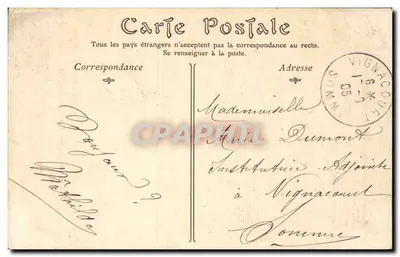 Carte Postale
Tous les pays étrangers n'acceptent pas la correspondance au recto.
Se renseigner à la poste.
Correspondance
Adresse
VIGNACOURT
6 *
1 -3
05
SOMME
Mademoiselle
Dumont
Institutrice Adjointe
à Vignacourt
Somme
Bonjour
Mathilde
delcampe.net